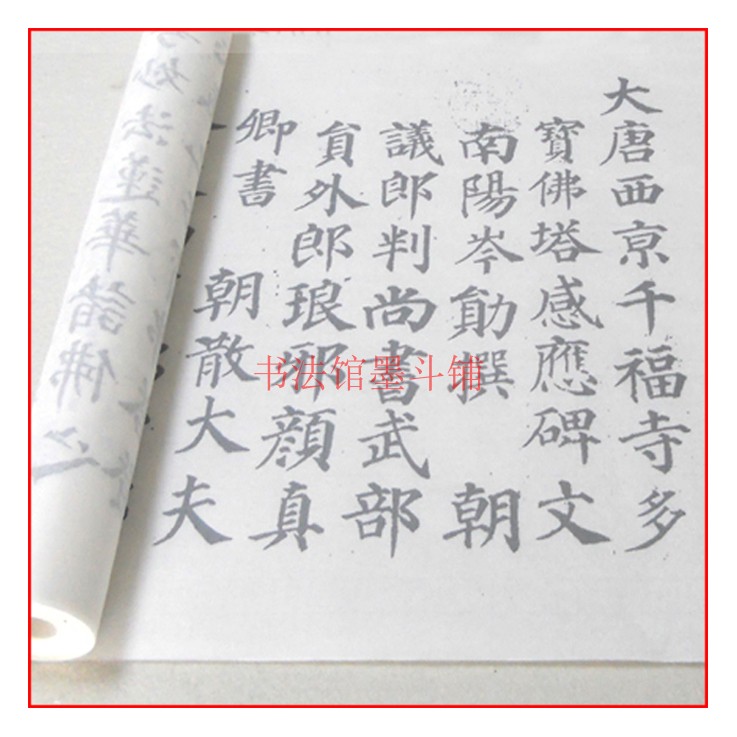 大唐西京千福寺多
寳佛塔感應碑文
南陽岑勛撰 朝
議郎判尚書武部
貟外郎琅邪顔真
卿書 朝散大夫
妙法蓮華諸佛之
书法馆墨斗铺